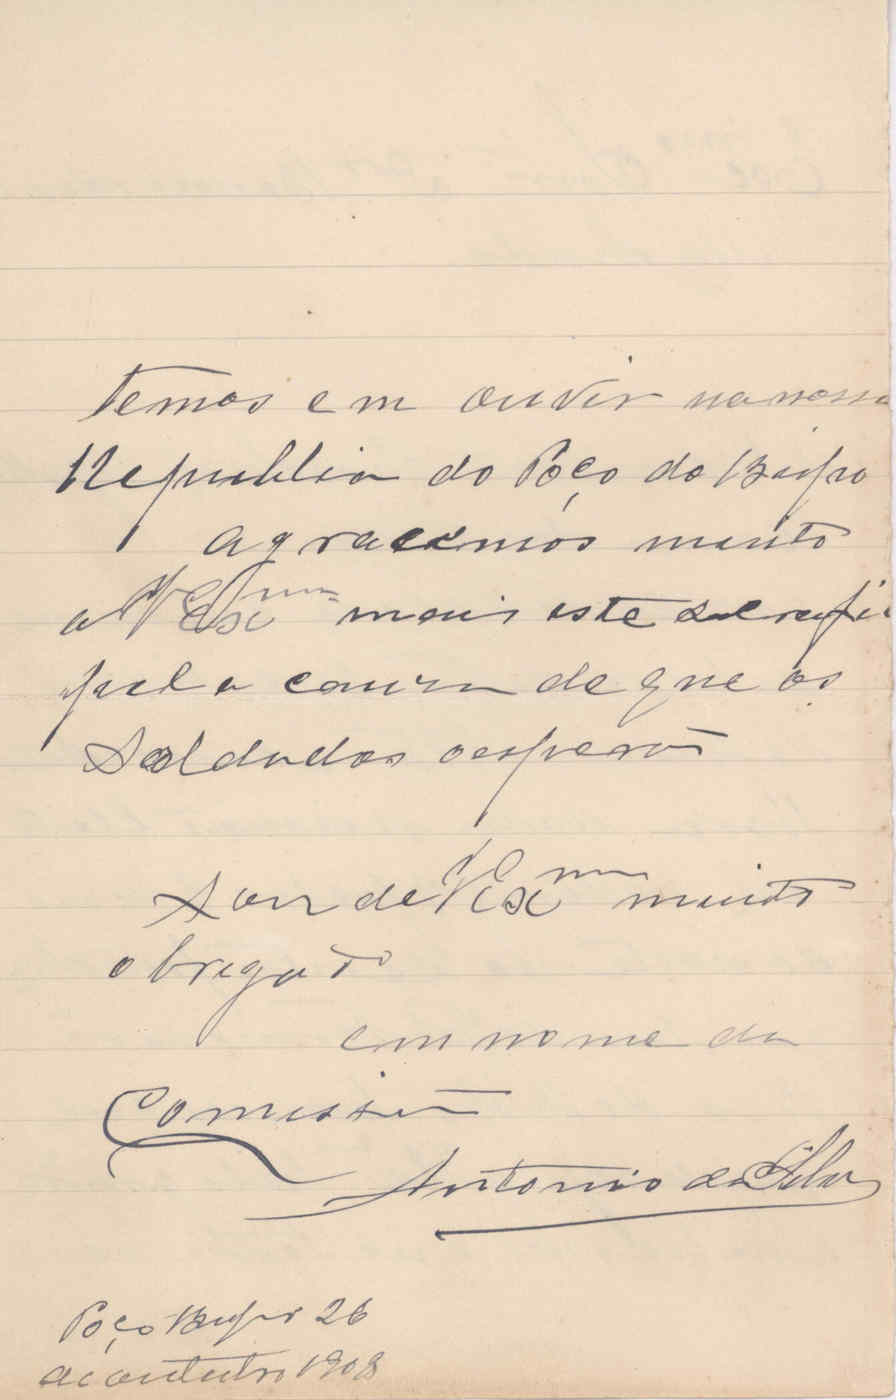 temos em ouvir na nossa
Republica do Poço do Bispo
agradecemos muito
a VExma mais este sacrafi
pela causa de que os
Soldados oesperão
Sou de VExma muito
obrigado
em nome da
Comissão
Antonio da Silva
Poço Bispo 26
de outubro 1908